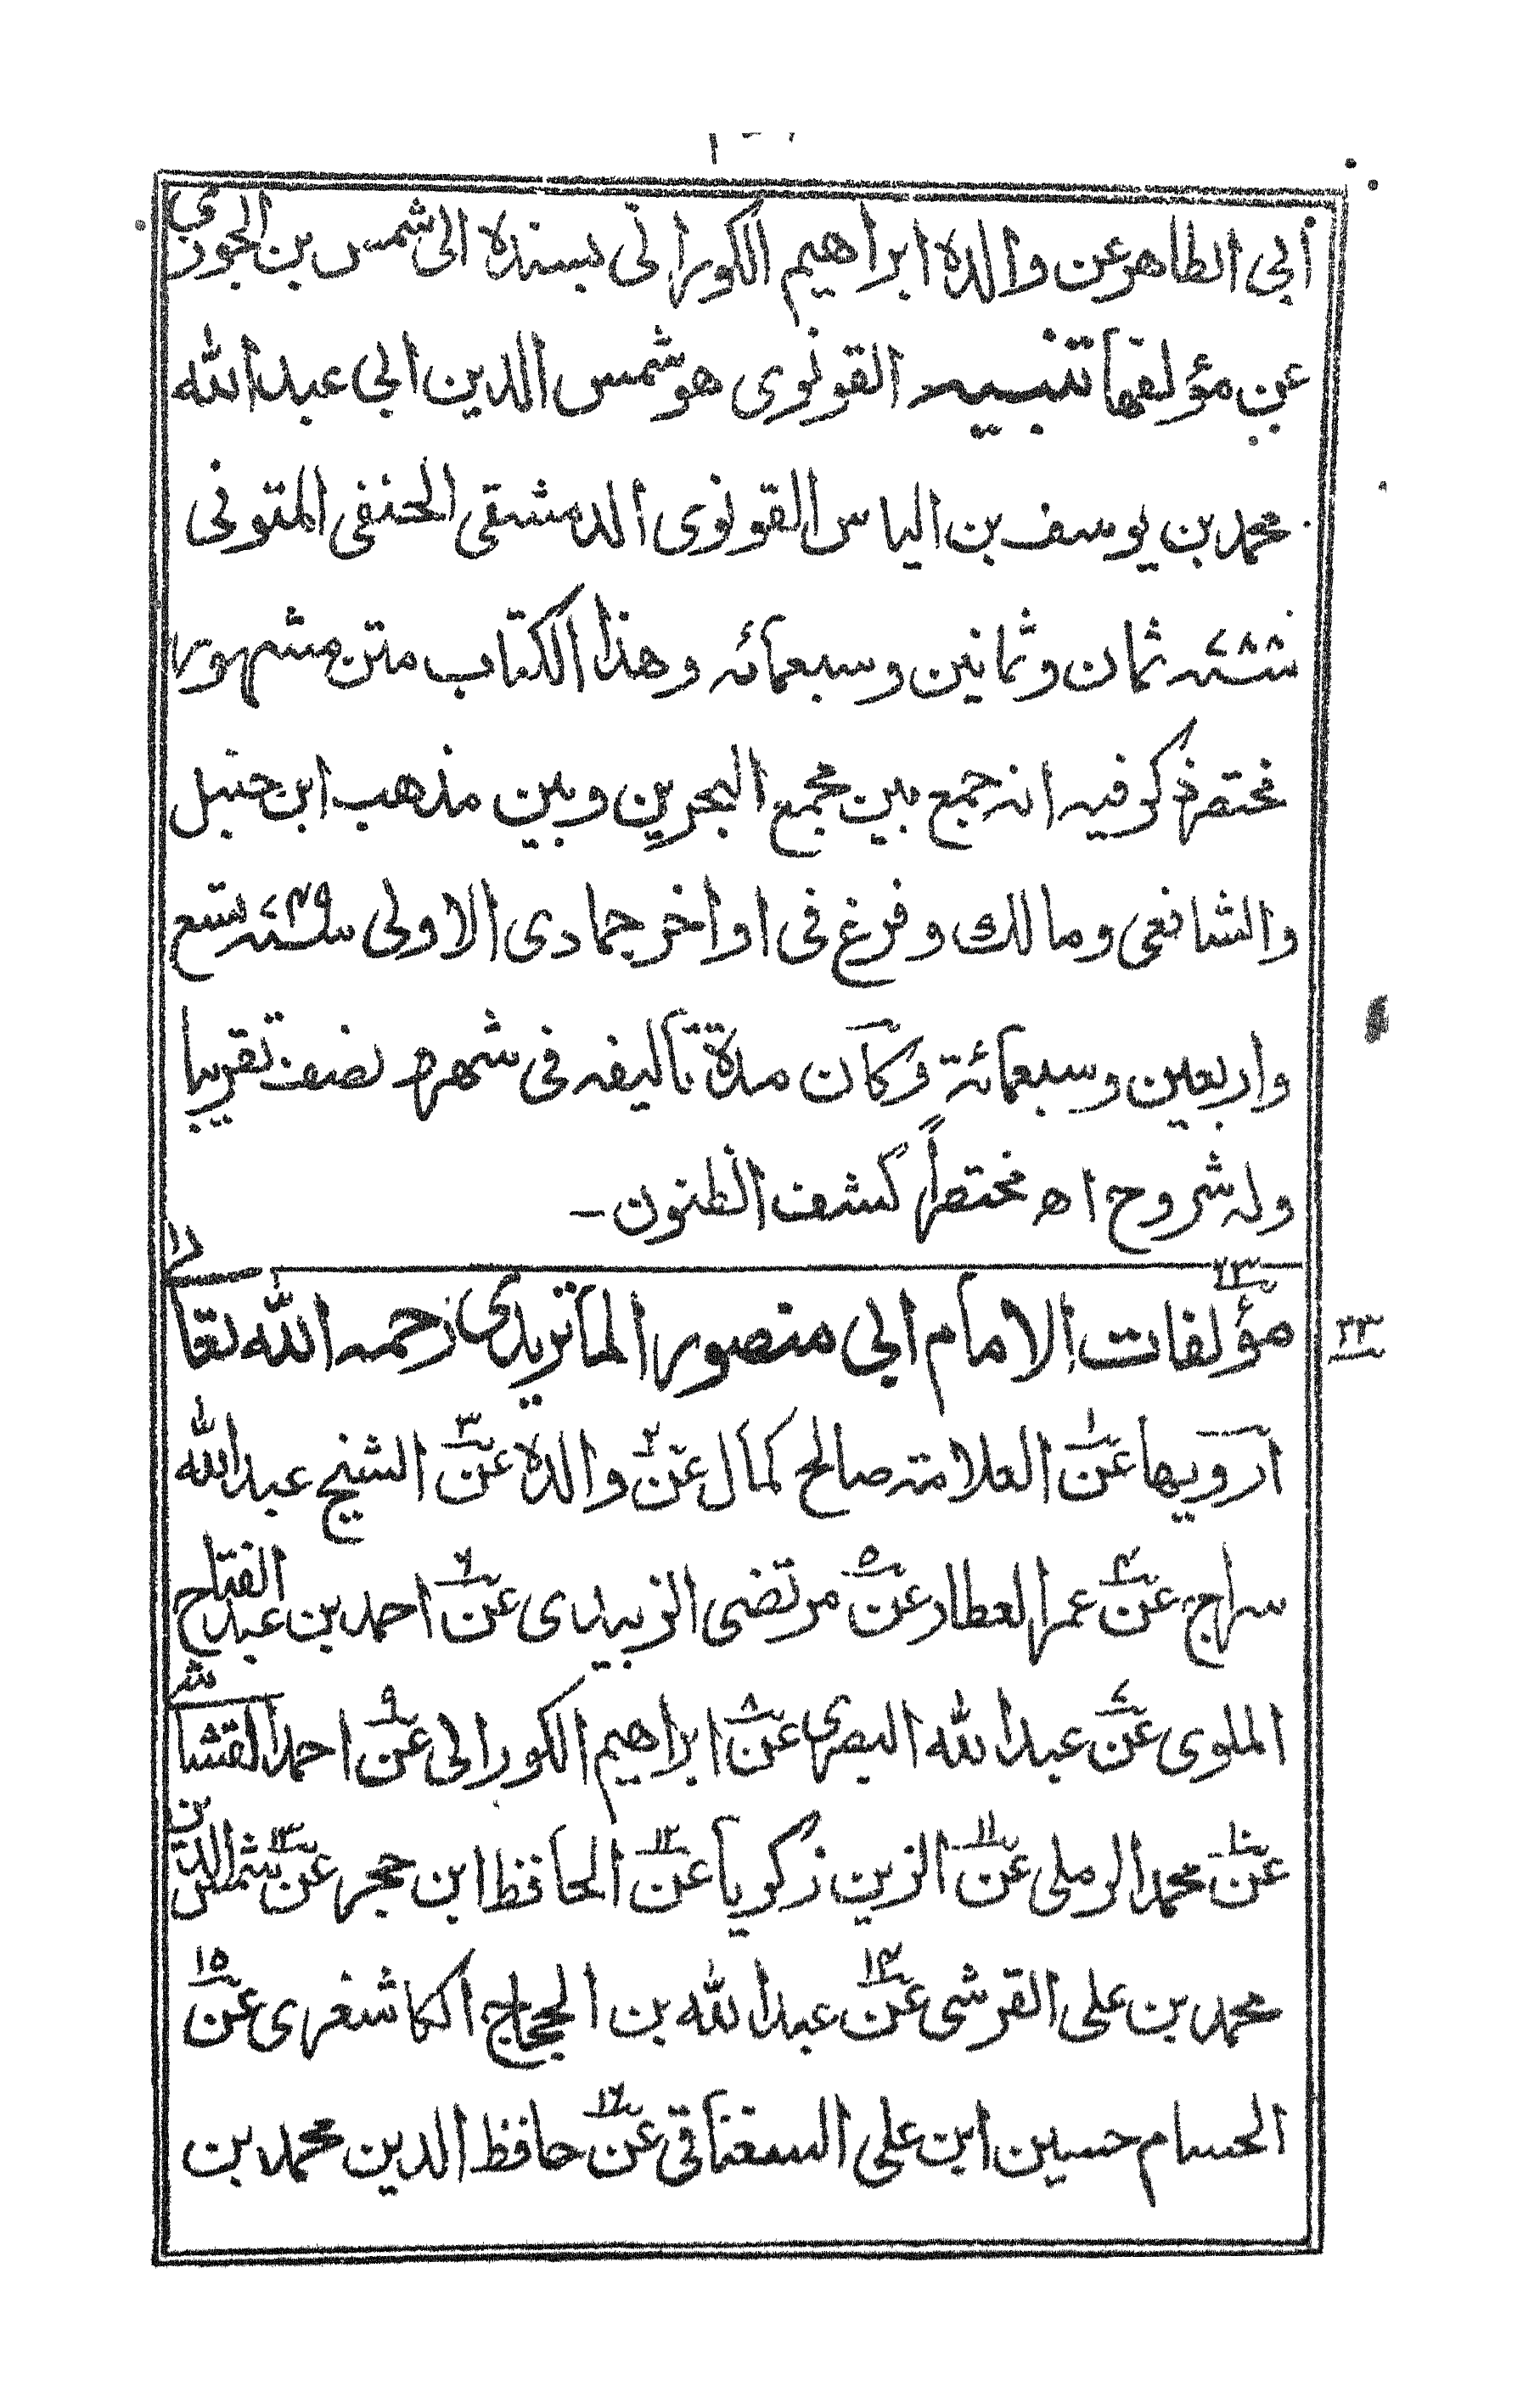 ابي الطاهر عن والده ابراهيم الكوراني بسنده الى شمس بن الجوزي
عن مؤلفها تنبيه القونوي هو شمس الدين ابي عبد الله
محمد بن يوسف بن الياس القونوي الدمشقي الحنفي المتوفى
سنة ٧٨٨ ثمان وثمانين وسبعمائه وهذا الكتاب متن مشهور
مختصر ذكر فيه انه جمع بين مجمع البحرين وبين مذهب ابن حنبل
والشافعي ومالك وفرغ في اواخر جمادى الاولى سنة ٧٤٩ تسع
واربعين وسبعمائة وكان مدة تأليفه في شهر ونصف تقريبا
وله شروح اه مختصراً كشف الظنون -
مؤلفات الامام ابي منصور الماتريدي رحمه الله تعالى
٢٣
ارويها عن ١ العلامة صالح كمال عن ٢ والده عن ٣ الشيخ عبد الله
سراج عن ٤ عمر العطار عن ٥ مرتضى الزبيدي عن ٦ احمد بن عبد الفتاح
الملوي عن ٧ عبد الله البصري عن ٨ ابراهيم الكوراني عن ٩ احمد القشاشي
عن ١٠ محمد الرملي عن ١١ الزين زكريا عن ١٢ الحافظ ابن حجر عن ١٣ شمس الدين
محمد بن علي القرشي عن ١٤ عبد الله بن الحجاج الكاشغري عن ١٥
الحسام حسين ابن علي السغناقي عن ١٦ حافظ الدين محمد بن